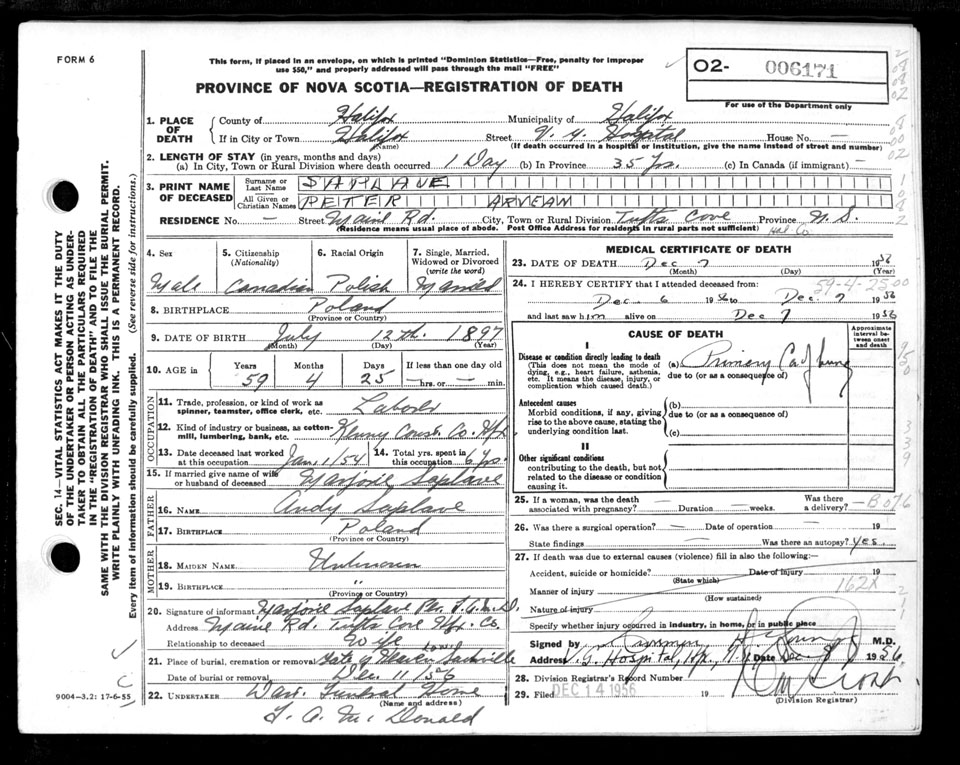 FORM 6
This form, if placed in an envelope, on which is printed "Dominion Statistics—Free, penalty for improper
use $50," and properly addressed will pass through the mail "FREE"
O2- 006171
For use of the Department only
PROVINCE OF NOVA SCOTIA—REGISTRATION OF DEATH
1. PLACE OF DEATH
County of Halifax Municipality of Halifax
If in City or Town Halifax Street V. G. Hospital House No. —
(Name) (If death occurred in a hospital or institution, give the name instead of street and number)
2. LENGTH OF STAY (in years, months and days)
(a) In City, Town or Rural Division where death occurred 1 Day (b) In Province 35 Yrs. (c) In Canada (if immigrant) —
3. PRINT NAME OF DECEASED
Surname or Last Name SAPLAVE
All Given or Christian Names PETER
RESIDENCE No. — Street Maine Rd. City, Town or Rural Division Tufts Cove Province N. S.
(Residence means usual place of abode. Post Office Address for residents in rural parts not sufficient) Hal Co.
4. Sex Male
5. Citizenship (Nationality) Canadian
6. Racial Origin Polish
7. Single, Married, Widowed or Divorced (write the word) Married
8. BIRTHPLACE Poland
(Province or Country)
9. DATE OF BIRTH July 12th. 1897
(Month) (Day) (Year)
10. AGE in Years 59 Months 4 Days 25 If less than one day old — hrs. or — min.
OCCUPATION
11. Trade, profession, or kind of work as spinner, teamster, office clerk, etc. Laborer
12. Kind of industry or business, as cotton-mill, lumbering, bank, etc. Kenny Const. Co. Hfx.
13. Date deceased last worked at this occupation Jan. 1/54 14. Total yrs. spent in this occupation 6 Yrs.
15. If married give name of wife or husband of deceased Marjorie Saplave
FATHER
16. NAME Andy Saplave
17. BIRTHPLACE Poland
(Province or Country)
MOTHER
18. MAIDEN NAME Unknown
19. BIRTHPLACE "
(Province or Country)
20. Signature of informant Marjorie Saplave Per.
Address Maine Rd. Tufts Cove Hfx. Co.
Relationship to deceased Wife
21. Place of burial, cremation or removal Gate of Heaven Sackville
Date of burial or removal Dec. 11/56
22. UNDERTAKER Funeral Home
(Name and address)
Mc Donald
MEDICAL CERTIFICATE OF DEATH
23. DATE OF DEATH Dec 7 1956
(Month) (Day) (Year)
59-4-25-00
24. I HEREBY CERTIFY that I attended deceased from:
Dec 6 1956 to Dec 7 1956
and last saw him alive on Dec 7 1956
CAUSE OF DEATH
Approximate interval between onset and death
I
Disease or condition directly leading to death (a) Primary Ca of lung
(This does not mean the mode of dying, e.g., heart failure, asthenia, etc. It means the disease, injury, or complication which caused death.)
due to (or as a consequence of)
Antecedent causes (b)
Morbid conditions, if any, giving rise to the above cause, stating the underlying condition last.
due to (or as a consequence of)
(c)
II
Other significant conditions
contributing to the death, but not related to the disease or condition causing it.
25. If a woman, was the death associated with pregnancy? — Duration — weeks. Was there a delivery? —
26. Was there a surgical operation? — Date of operation — 19
State findings Was there an autopsy? Yes.
27. If death was due to external causes (violence) fill in also the following:—
Accident, suicide or homicide? Date of injury 19
(State which)
Manner of injury 162X
(How sustained)
Nature of injury
Specify whether injury occurred in industry, in home, or in public place
Signed by M.D.
Address V. G. Hospital, Hfx., N.S. Date Dec 8 1956.
28. Division Registrar's Record Number
29. Filed DEC 14 1956 19
(Division Registrar)
SEC. 14—VITAL STATISTICS ACT MAKES IT THE DUTY
OF THE UNDERTAKER OR PERSON ACTING AS UNDER-
TAKER TO OBTAIN ALL THE PARTICULARS REQUIRED
IN THE "REGISTRATION OF DEATH" AND TO FILE THE
SAME WITH THE DIVISION REGISTRAR WHO SHALL ISSUE THE BURIAL PERMIT.
WRITE PLAINLY WITH UNFADING INK. THIS IS A PERMANENT RECORD.
Every item of information should be carefully supplied. (See reverse side for instructions.)
9004-3.2: 17-6-55